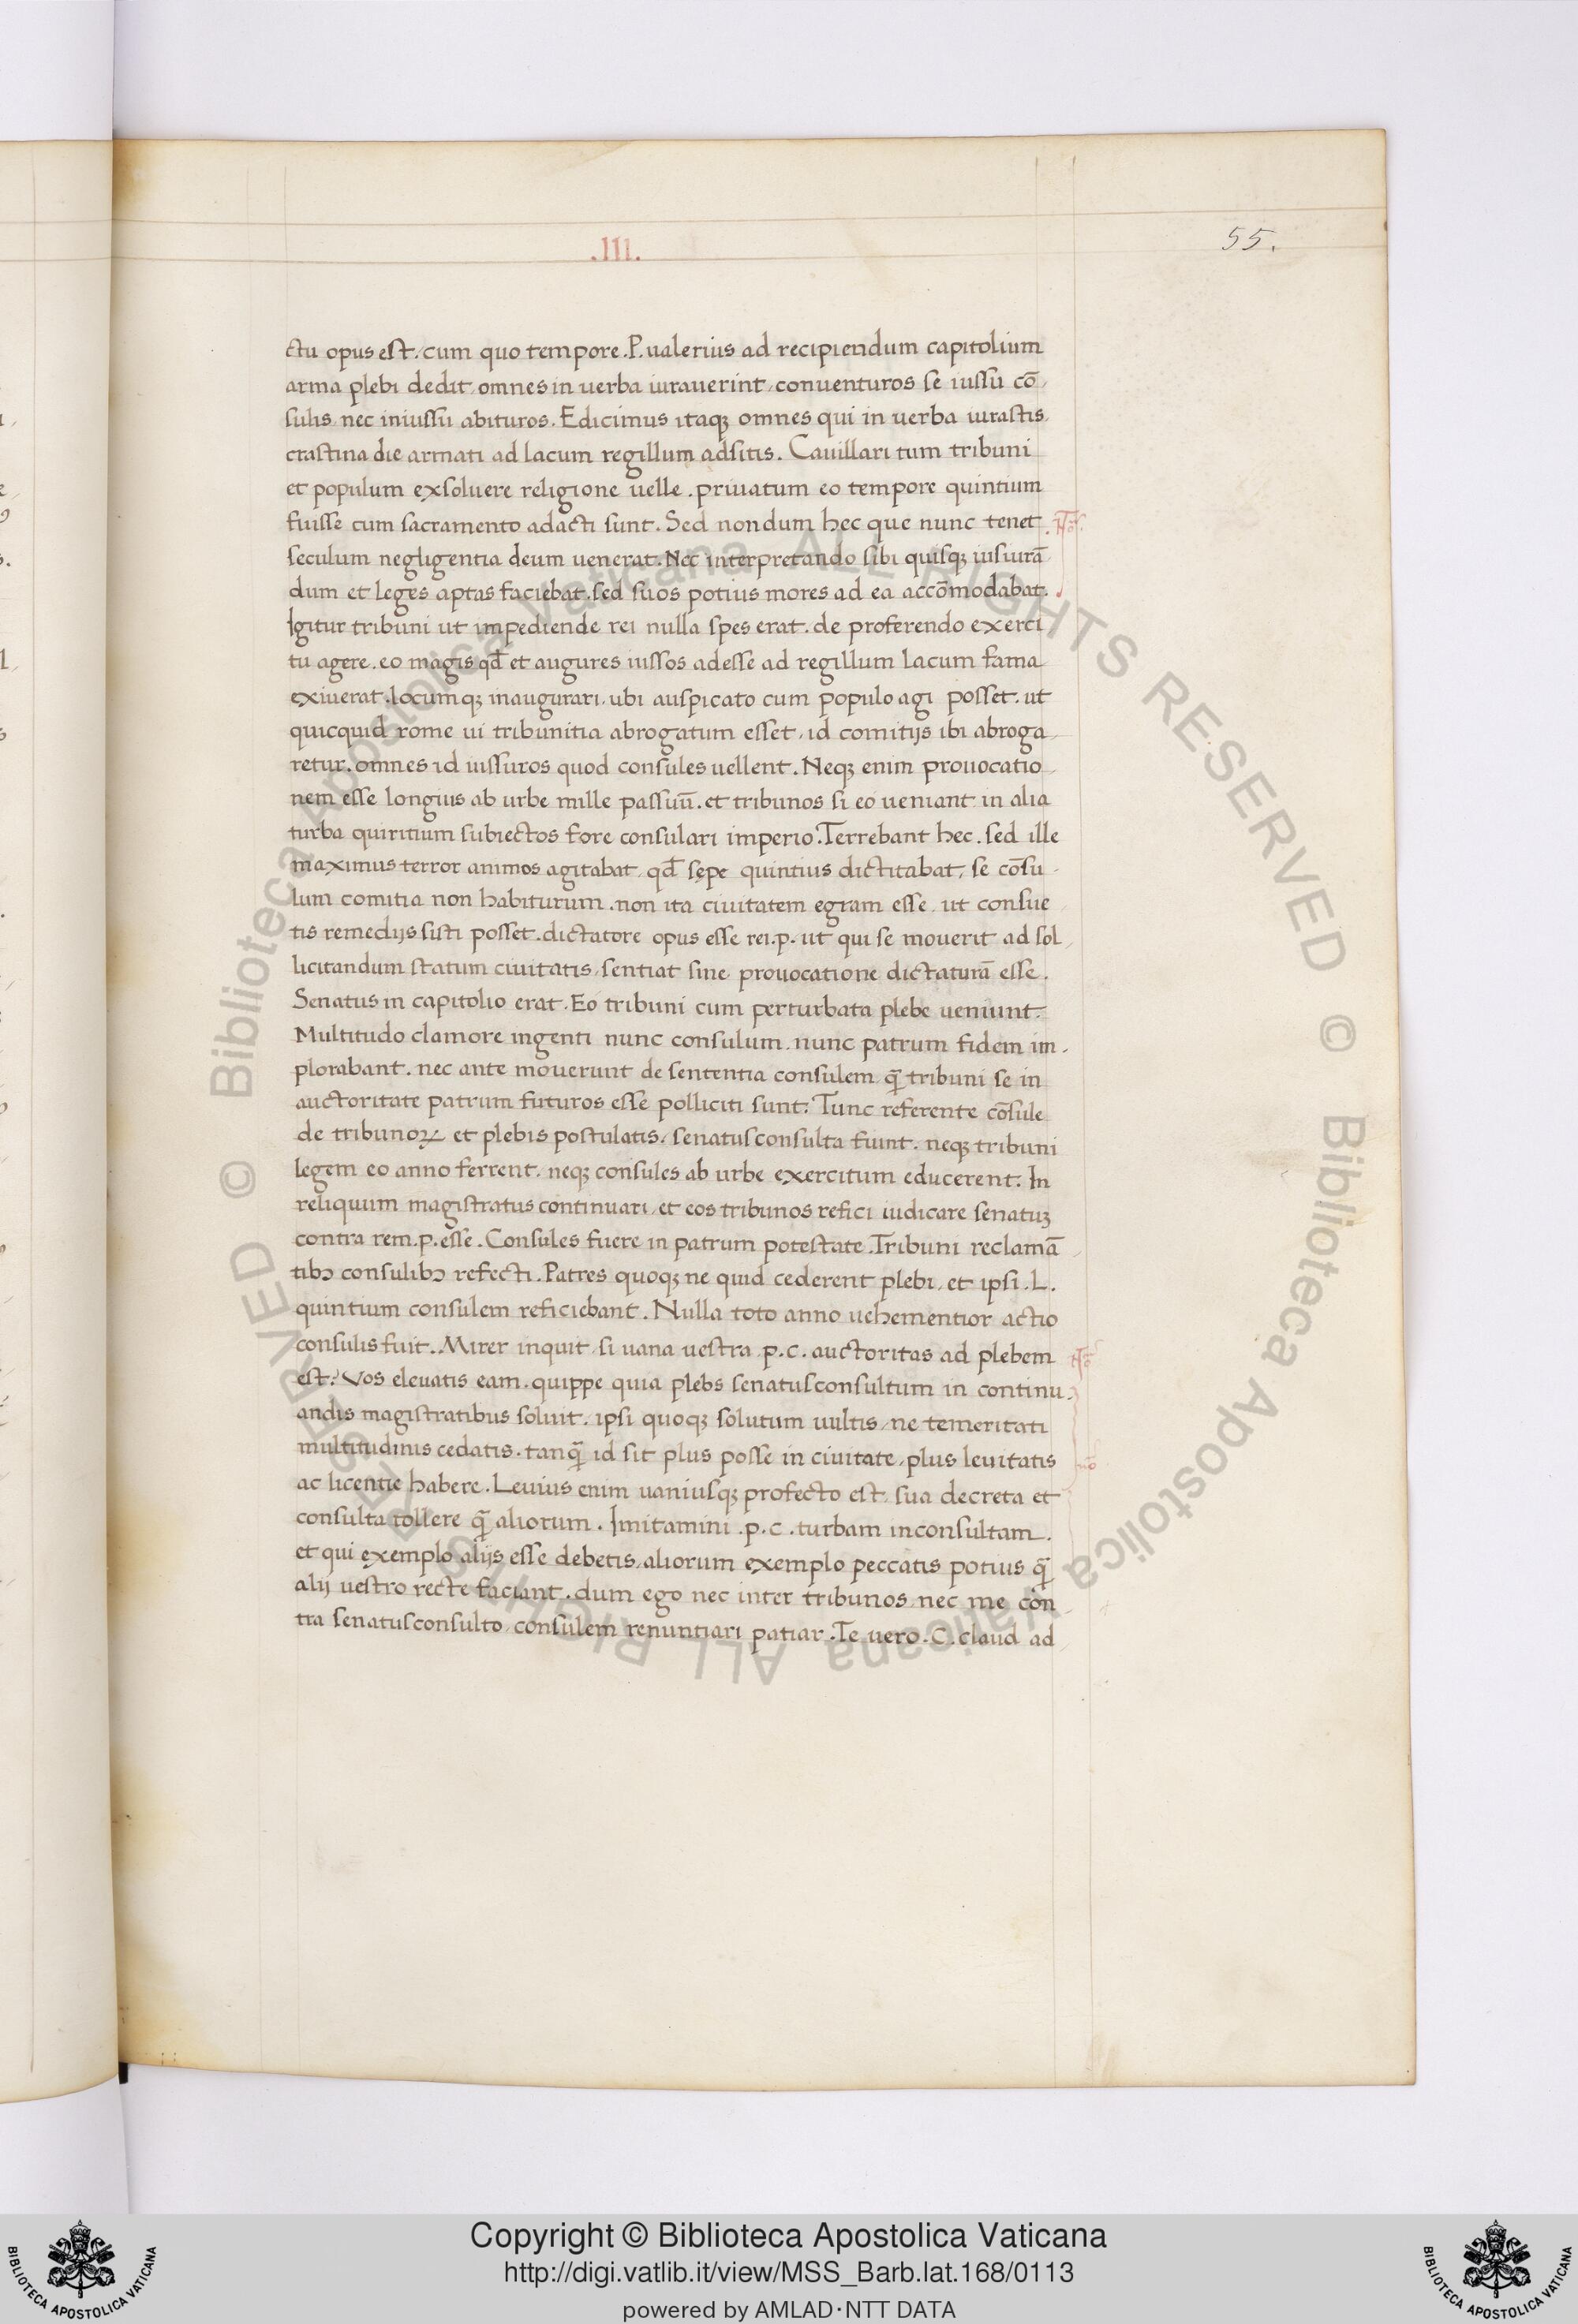 .III.
55.
ctu opus est. cum quo tempore .P. ualerius ad recipiendum capitolium
arma plebi dedit, omnes in uerba iurauerint, conuenturos se iussu cō,
sulis, nec iniussu abituros. Edicimus itaqꝫ omnes qui in uerba iurastis,
crastina die armati ad lacum regillum adsitis. Cauillari tum tribuni
et populum exsoluere religione uelle. priuatum eo tempore quintium
fuisse cum sacramento adacti sunt. Sed nondum hec que nunc tenet
seculum negligentia deum uenerat. Nec interpretando sibi quisqꝫ iusiurā
dum et leges aptas faciebat. sed suos potius mores ad ea accōmodabat.
Igitur tribuni ut impediende rei nulla spes erat. de proferendo exerci
tu agere. eo magis qđ et augures iussos adesse ad regillum lacum fama
exiuerat. locumqꝫ inaugurari. ubi auspicato cum populo agi posset. ut
quicquid rome ui tribunitia abrogatum esset, id comitijs ibi abroga,
retur. omnes id iussuros quod consules uellent. Neqꝫ enim prouocatio
nem esse longius ab urbe mille passuū. et tribunos si eo ueniant in alia
turba quiritium subiectos fore consulari imperio. Terrebant hec. sed ille
maximus terror animos agitabat, qđ sępe quintius dictitabat, se cōsu,
lum comitia non habiturum. non ita ciuitatem egram esse, ut consue,
tis remedijs sisti posset. dictatore opus esse rei.p. ut qui se mouerit ad sol,
licitandum statum ciuitatis, sentiat sine prouocatione dictaturā esse.
Senatus in capitolio erat. Eo tribuni cum perturbata plebe ueniunt.
Multitudo clamore ingenti nunc consulum, nunc patrum fidem im,
plorabant. nec ante mouerunt de sententia consulem, q̄ tribuni se in
auctoritate patrum futuros esse polliciti sunt. Tunc referente cōsule
de tribunoꝝ et plebis postulatis, senatusconsulta fiunt. neqꝫ tribuni
legem eo anno ferrent. neqꝫ consules ab urbe exercitum educerent. In
reliquum magistratus continuari, et eos tribunos refici iudicare senatuꝫ
contra rem.p. esse. Consules fuere in patrum potestate. Tribuni reclamā,
tibꝫ consulibꝫ refecti. Patres quoqꝫ ne quid cederent plebi, et ipsi .L.
quintium consulem reficiebant. Nulla toto anno uehementior actio
consulis fuit. Mirer inquit, si uana uestra .p.c. auctoritas ad plebem
est? Vos eleuatis eam. quippe quia plebs senatusconsultum in continu,
andis magistratibus soluit. ipsi quoqꝫ solutum uultis, ne temeritati
multitudinis cedatis. tanq̄ id sit plus posse in ciuitate, plus leuitatis
ac licentie habere. Leuius enim uaniusqꝫ profecto est, sua decreta et
consulta tollere q̄ aliorum. Imitamini .p.c. turbam inconsultam.
et qui exemplo alijs esse debetis, aliorum exemplo peccatis potius q̄
alij uestro recte faciant. dum ego nec inter tribunos, nec me con,
tra senatusconsulto, consulem renuntiari patiar. Te uero .C. claud ad
© Biblioteca Apostolica Vaticana ALL RIGHTS RESERVED © Biblioteca Apostolica Vaticana ALL RIGHTS RESERVED
Copyright © Biblioteca Apostolica Vaticana
http://digi.vatlib.it/view/MSS_Barb.lat.168/0113
powered by AMLAD·NTT DATA
BIBLIOTECA APOSTOLICA VATICANA
BIBLIOTECA APOSTOLICA VATICANA